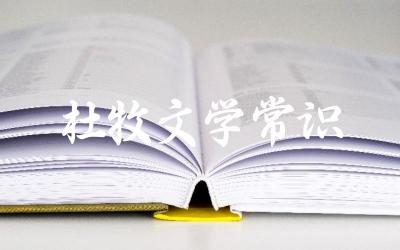 杜牧文学常识